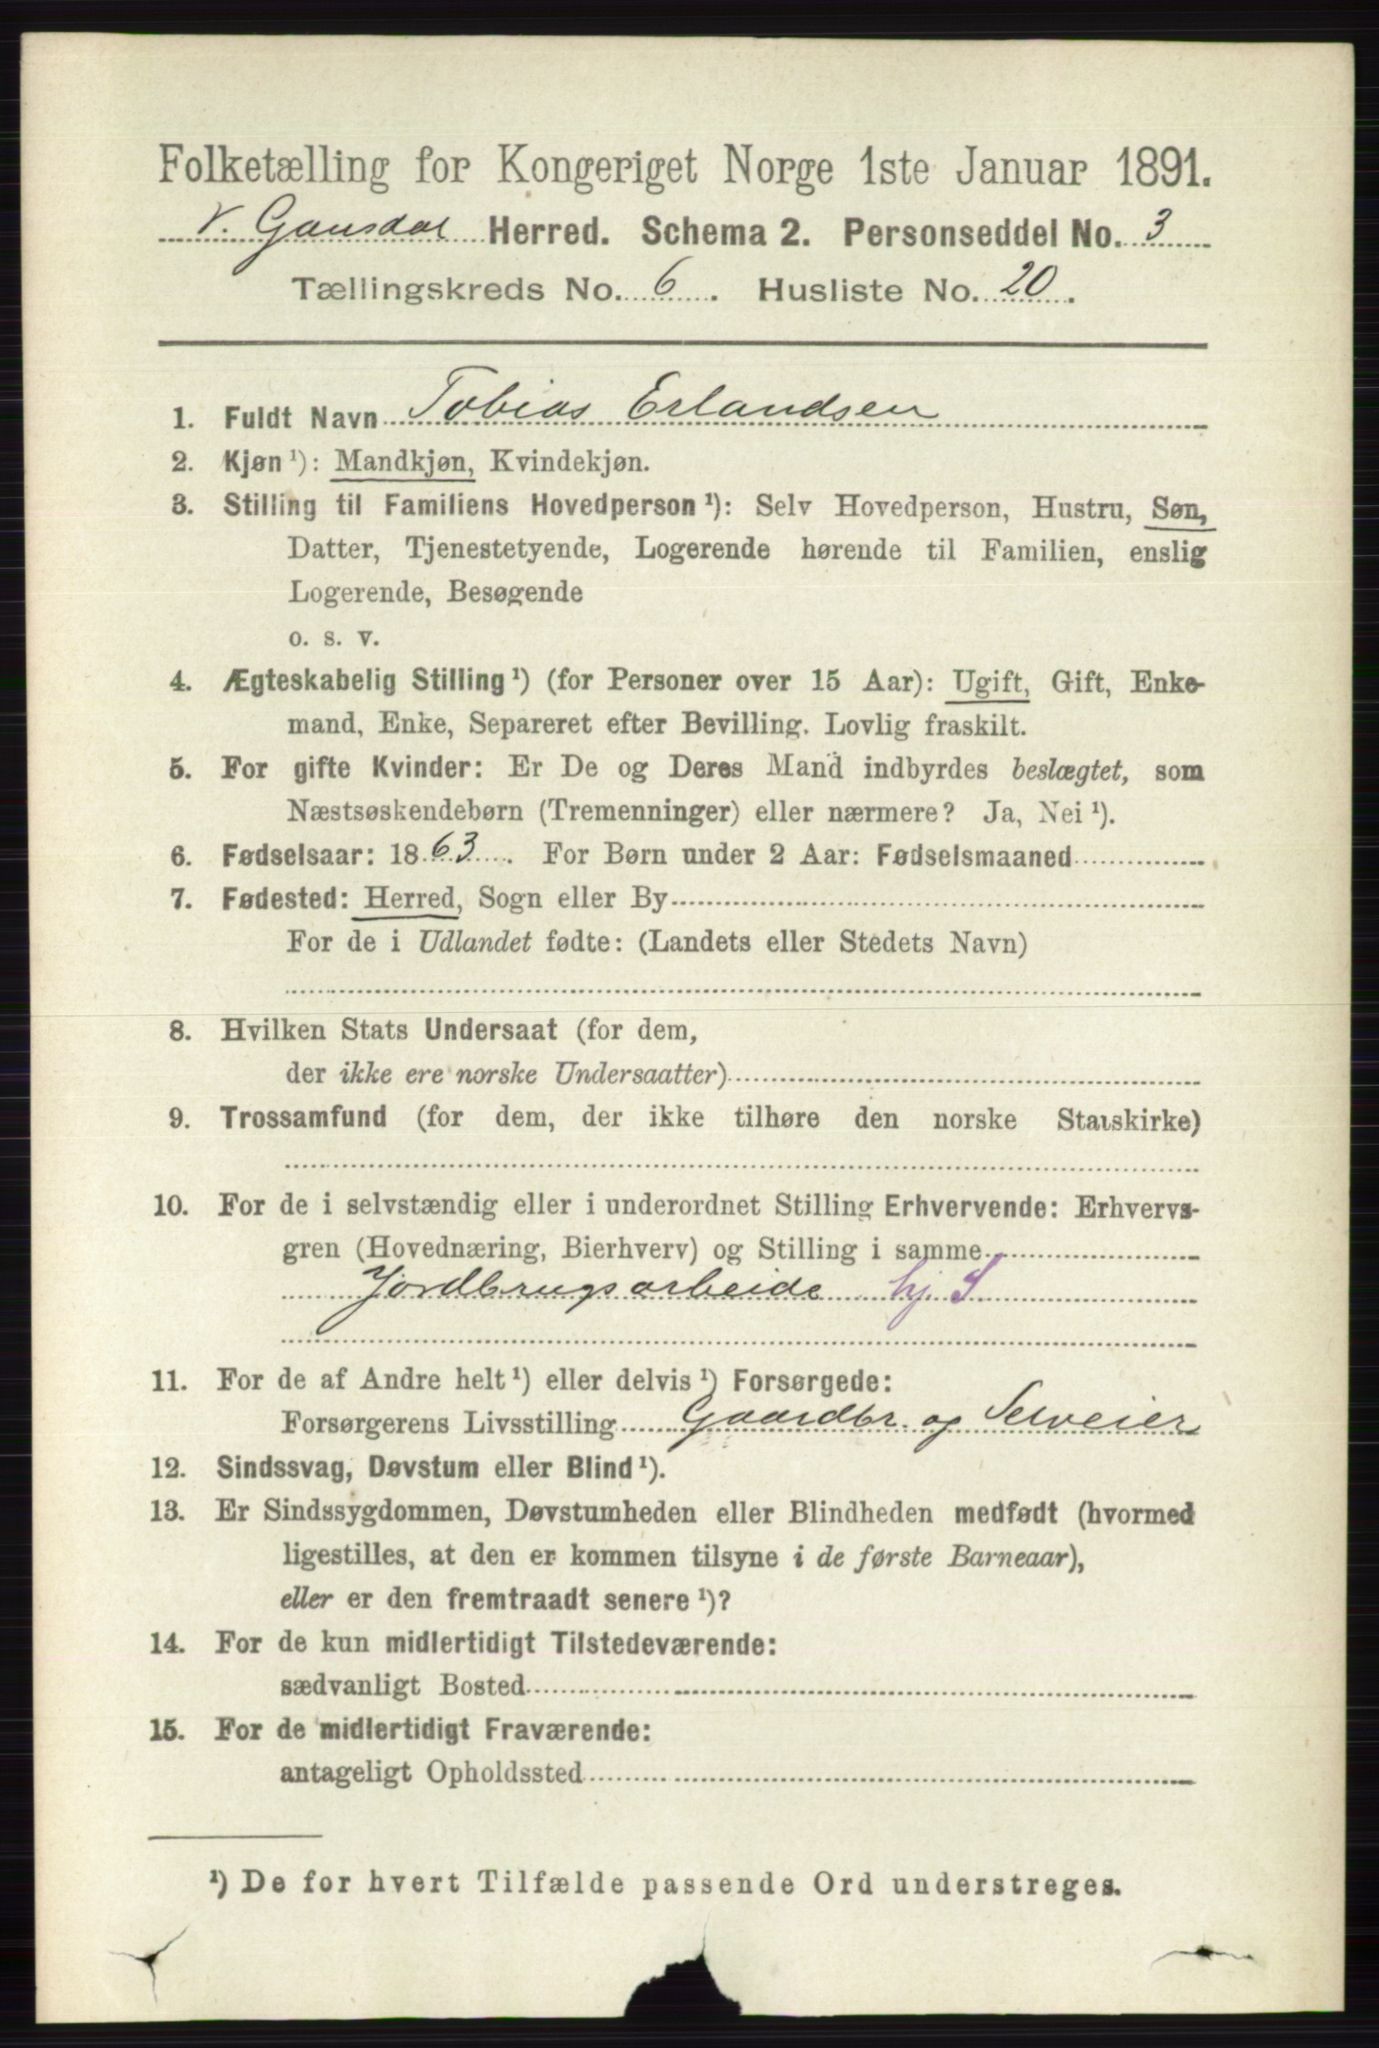 Folketælling for Kongeriget Norge 1ste Januar 1891.
V. Gausdal Herred. Schema 2. Personseddel No. 3
Tællingskreds No. 6. Husliste No. 20.
1. Fuldt Navn Tobias Erlandsen
2. Kjøn ¹): Mandkjøn, Kvindekjøn.
3. Stilling til Familiens Hovedperson ¹): Selv Hovedperson, Hustru, Søn,
Datter, Tjenestetyende, Logerende hørende til Familien, enslig
Logerende, Besøgende
o. s. v.
4. Ægteskabelig Stilling ¹) (for Personer over 15 Aar): Ugift, Gift, Enke-
mand, Enke, Separeret efter Bevilling. Lovlig fraskilt.
5. For gifte Kvinder: Er De og Deres Mand indbyrdes beslægtet, som
Næstsøskendebørn (Tremenninger) eller nærmere? Ja, Nei ¹).
6. Fødselsaar: 1863. For Børn under 2 Aar: Fødselsmaaned
7. Fødested: Herred, Sogn eller By
For de i Udlandet fødte: (Landets eller Stedets Navn)
8. Hvilken Stats Undersaat (for dem,
der ikke ere norske Undersaatter)
9. Trossamfund (for dem, der ikke tilhøre den norske Statskirke)
10. For de i selvstændig eller i underordnet Stilling Erhvervende: Erhvervs-
gren (Hovednæring, Bierhverv) og Stilling i samme
Jordbrugsarbeide hj. S
11. For de af Andre helt ¹) eller delvis ¹) Forsørgede:
Forsørgerens Livsstilling Gaardbr. og Selveier
12. Sindssvag, Døvstum eller Blind ¹).
13. Er Sindssygdommen, Døvstumheden eller Blindheden medfødt (hvormed
ligestilles, at den er kommen tilsyne i de første Barneaar),
eller er den fremtraadt senere ¹)?
14. For de kun midlertidigt Tilstedeværende:
sædvanligt Bosted
15. For de midlertidigt Fraværende:
antageligt Opholdssted
¹) De for hvert Tilfælde passende Ord understreges.